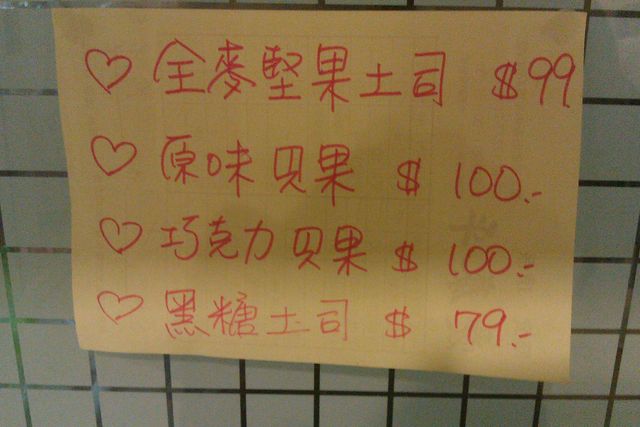 ♡ 全麥堅果土司 $99
♡ 原味贝果 $100.-
♡ 巧克力贝果 $100.-
♡ 黑糖土司 $79.-